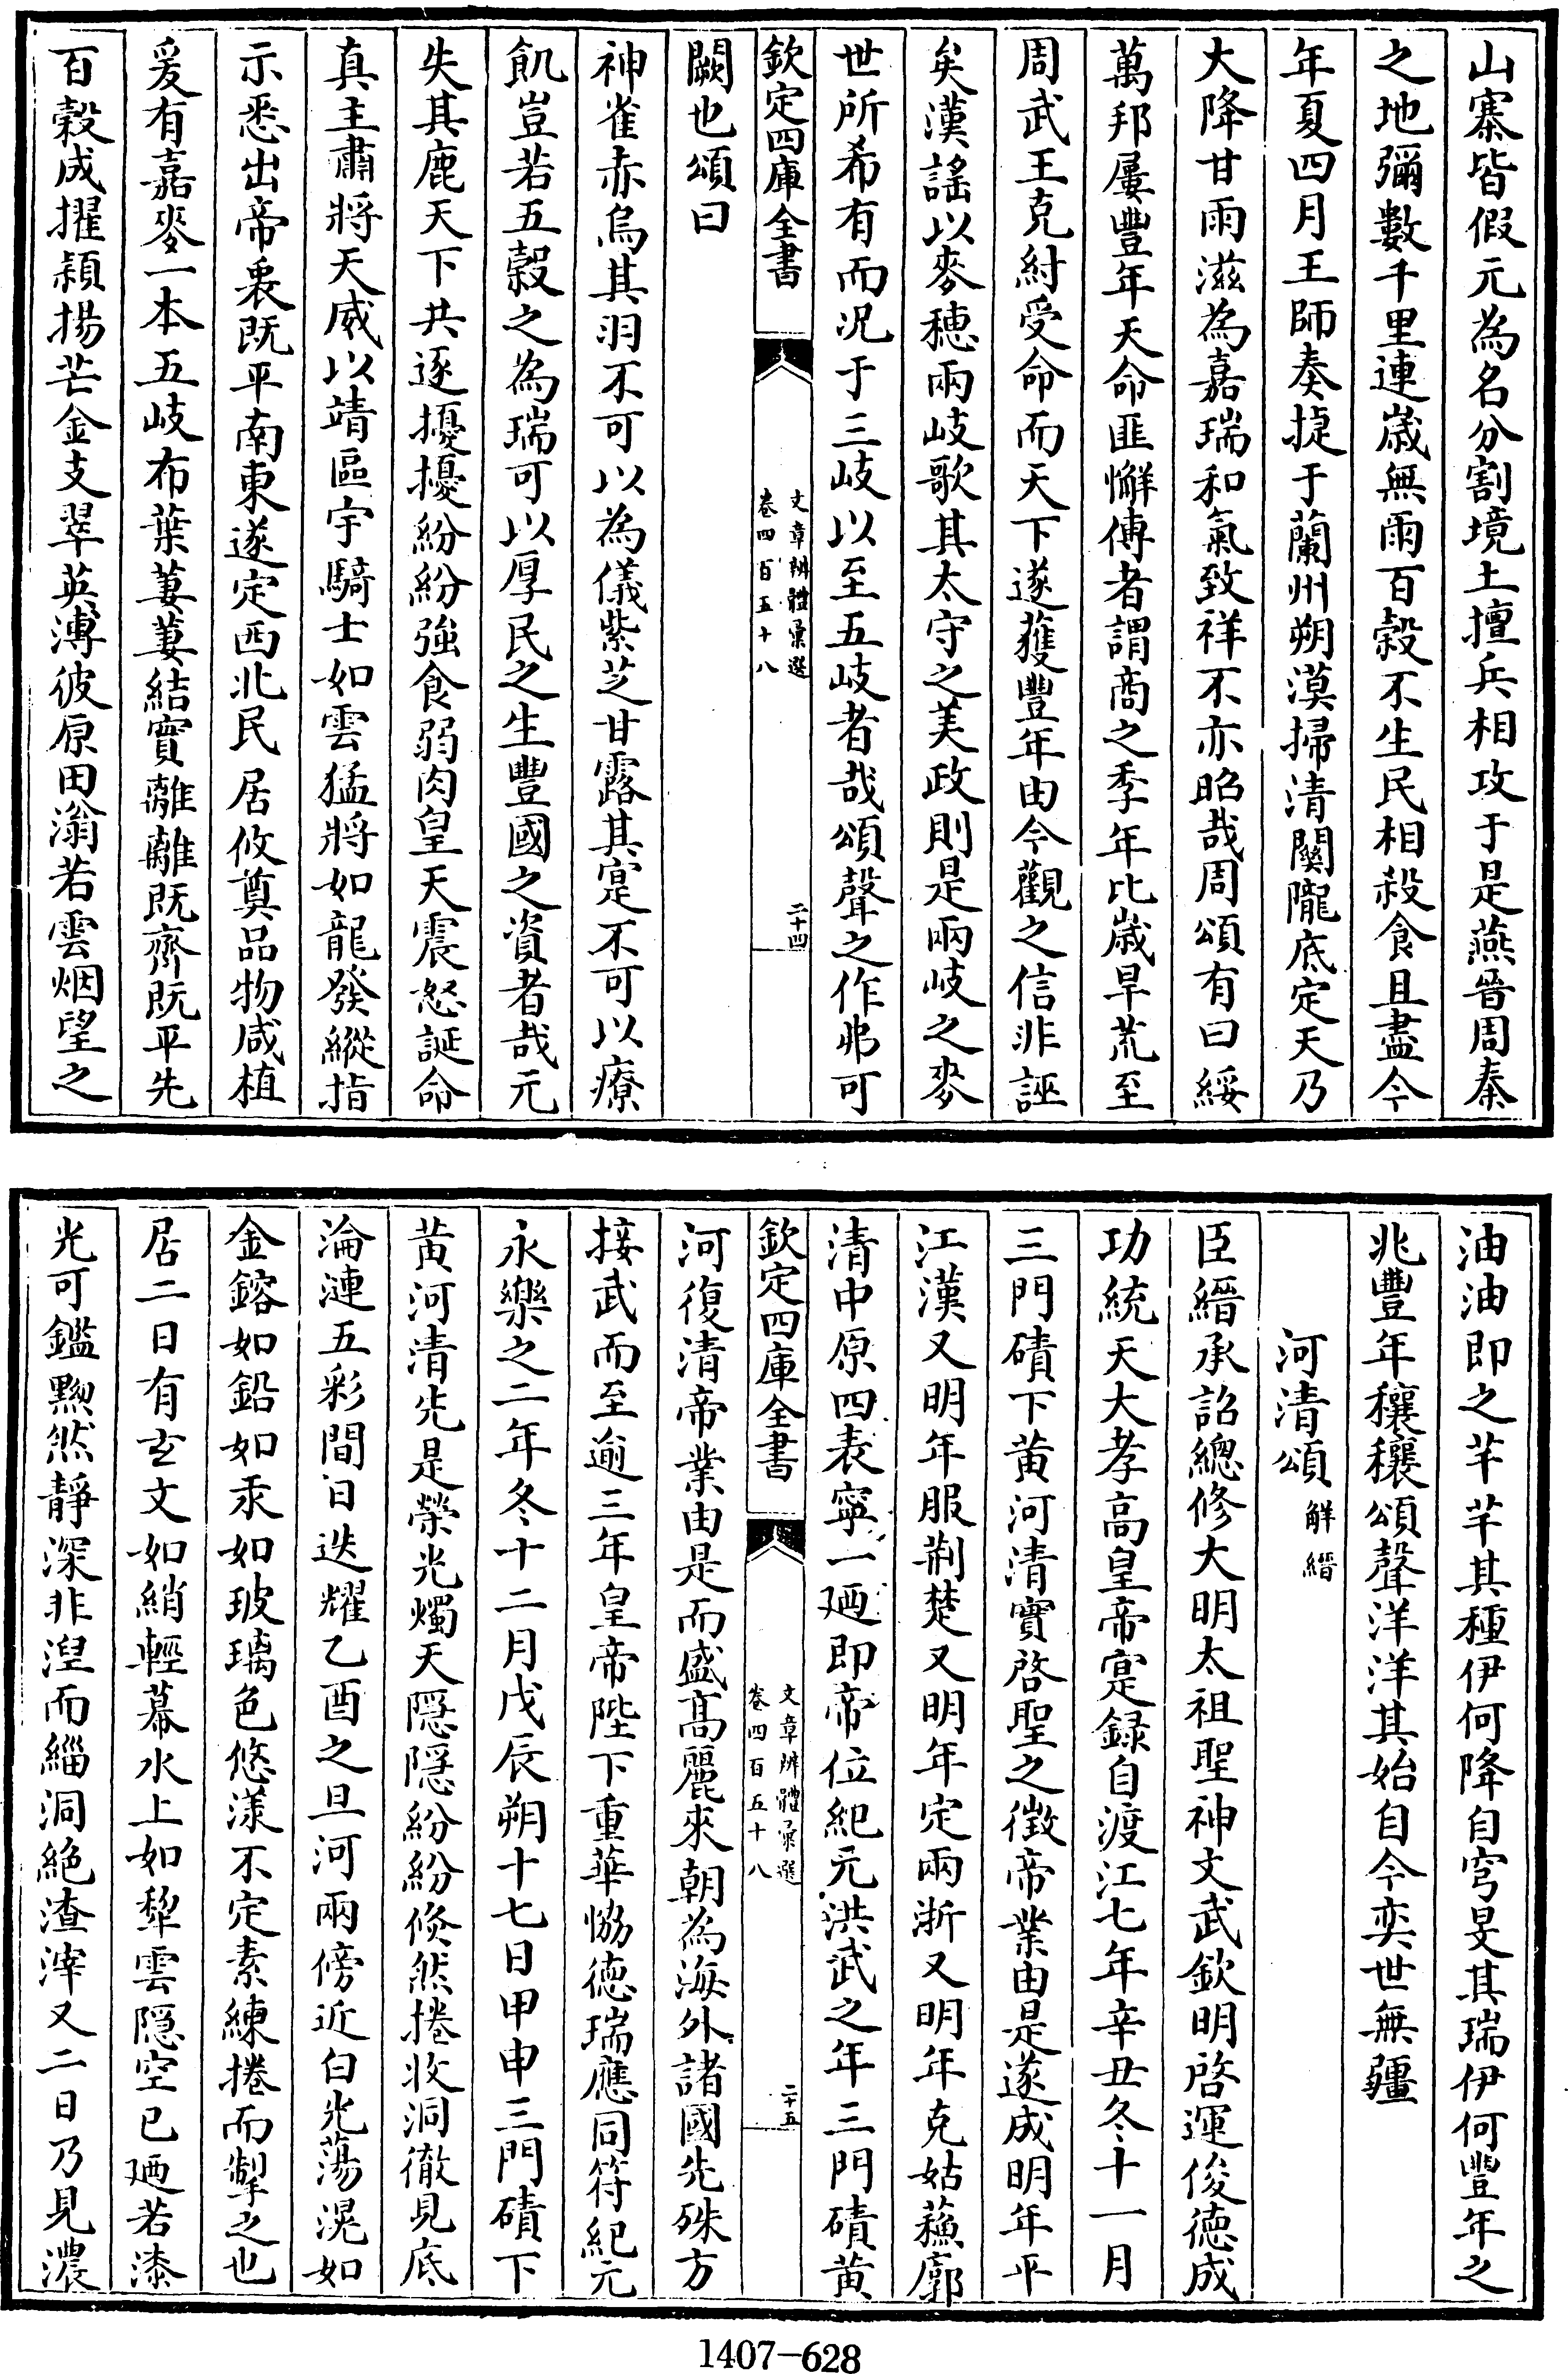 山寨皆假元為名分割境土擅兵相攻于是燕晉周秦
之地彌數千里連歲無雨百穀不生民相殺食且盡今
年夏四月王師奏捷于蘭州朔漠掃清關隴底定天乃
大降甘雨滋為嘉瑞和氣致祥不亦昭哉周頌有曰綏
萬邦屢豐年天命匪懈傳者謂商之季年比歲旱荒至
周武王克紂受命而天下遂獲豐年由今觀之信非誣
矣漢謠以麥穗兩岐歌其太守之美政則是兩岐之麥
世所希有而况于三岐以至五岐者哉頌聲之作弗可
欽定四庫全書
文章辨體彙選
卷四百五十八
二十四
闕也頌曰
神雀赤烏其羽不可以為儀紫芝甘露其寔不可以療
飢豈若五穀之為瑞可以厚民之生豐國之資者哉元
失其鹿天下共逐擾擾紛紛強食弱肉皇天震怒誕命
真主肅將天威以靖區宇騎士如雲猛將如龍發縱指
示悉出帝衷既平南東遂定西北民居攸奠品物咸植
爰有嘉麥一本五岐布葉萋萋結實離離既齊既平先
百穀成擢穎揚芒金支翠英溥彼原田滃若雲烟望之
油油即之芊芊其種伊何降自穹旻其瑞伊何豐年之
兆豐年穰穰頌聲洋洋其始自今奕世無疆
河清頌解縉
臣縉承詔總修大明太祖聖神文武欽明啓運俊德成
功統天大孝高皇帝寔録自渡江七年辛丑冬十一月
三門磧下黃河清實啓聖之徵帝業由是遂成明年平
江漢又明年服荆楚又明年定兩浙又明年克姑蘇廓
清中原四表寧一廼即帝位紀元洪武之年三門磧黃
欽定四庫全書
文章辨體彙選
卷四百五十八
二十五
河復清帝業由是而盛高麗來朝為海外諸國先殊方
接武而至逾三年皇帝陛下重華恊德瑞應同符紀元
永樂之二年冬十二月戊辰朔十七日甲申三門磧下
黃河清先是榮光燭天隱隱紛紛倐然捲收洞徹見底
淪漣五彩間日迭耀乙酉之旦河兩傍近白光蕩滉如
金鎔如鉛如汞如玻璃色悠漾不定素練捲而掣之也
居二日有玄文如綃輕幕水上如犂雲隱空已廼若漆
光可鑑黝然靜深非湼而緇洞絶渣滓又二日乃見濃
1407-628